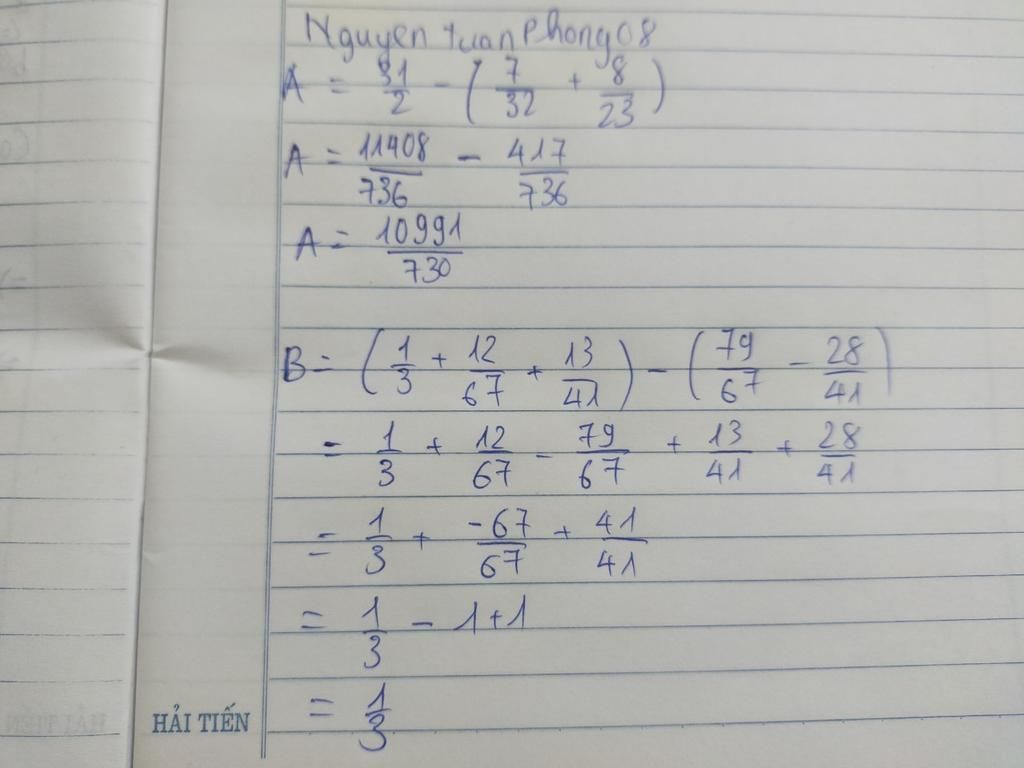 Nguyen tuan Phong 08
A = 31/2 - (7/32 + 8/23)
A = 11408/736 - 417/736
A = 10991/730
B = (1/3 + 12/67 + 13/41) - (79/67 - 28/41)
= 1/3 + 12/67 - 79/67 + 13/41 + 28/41
= 1/3 + -67/67 + 41/41
= 1/3 - 1 + 1
= 1/3
HẢI TIẾN